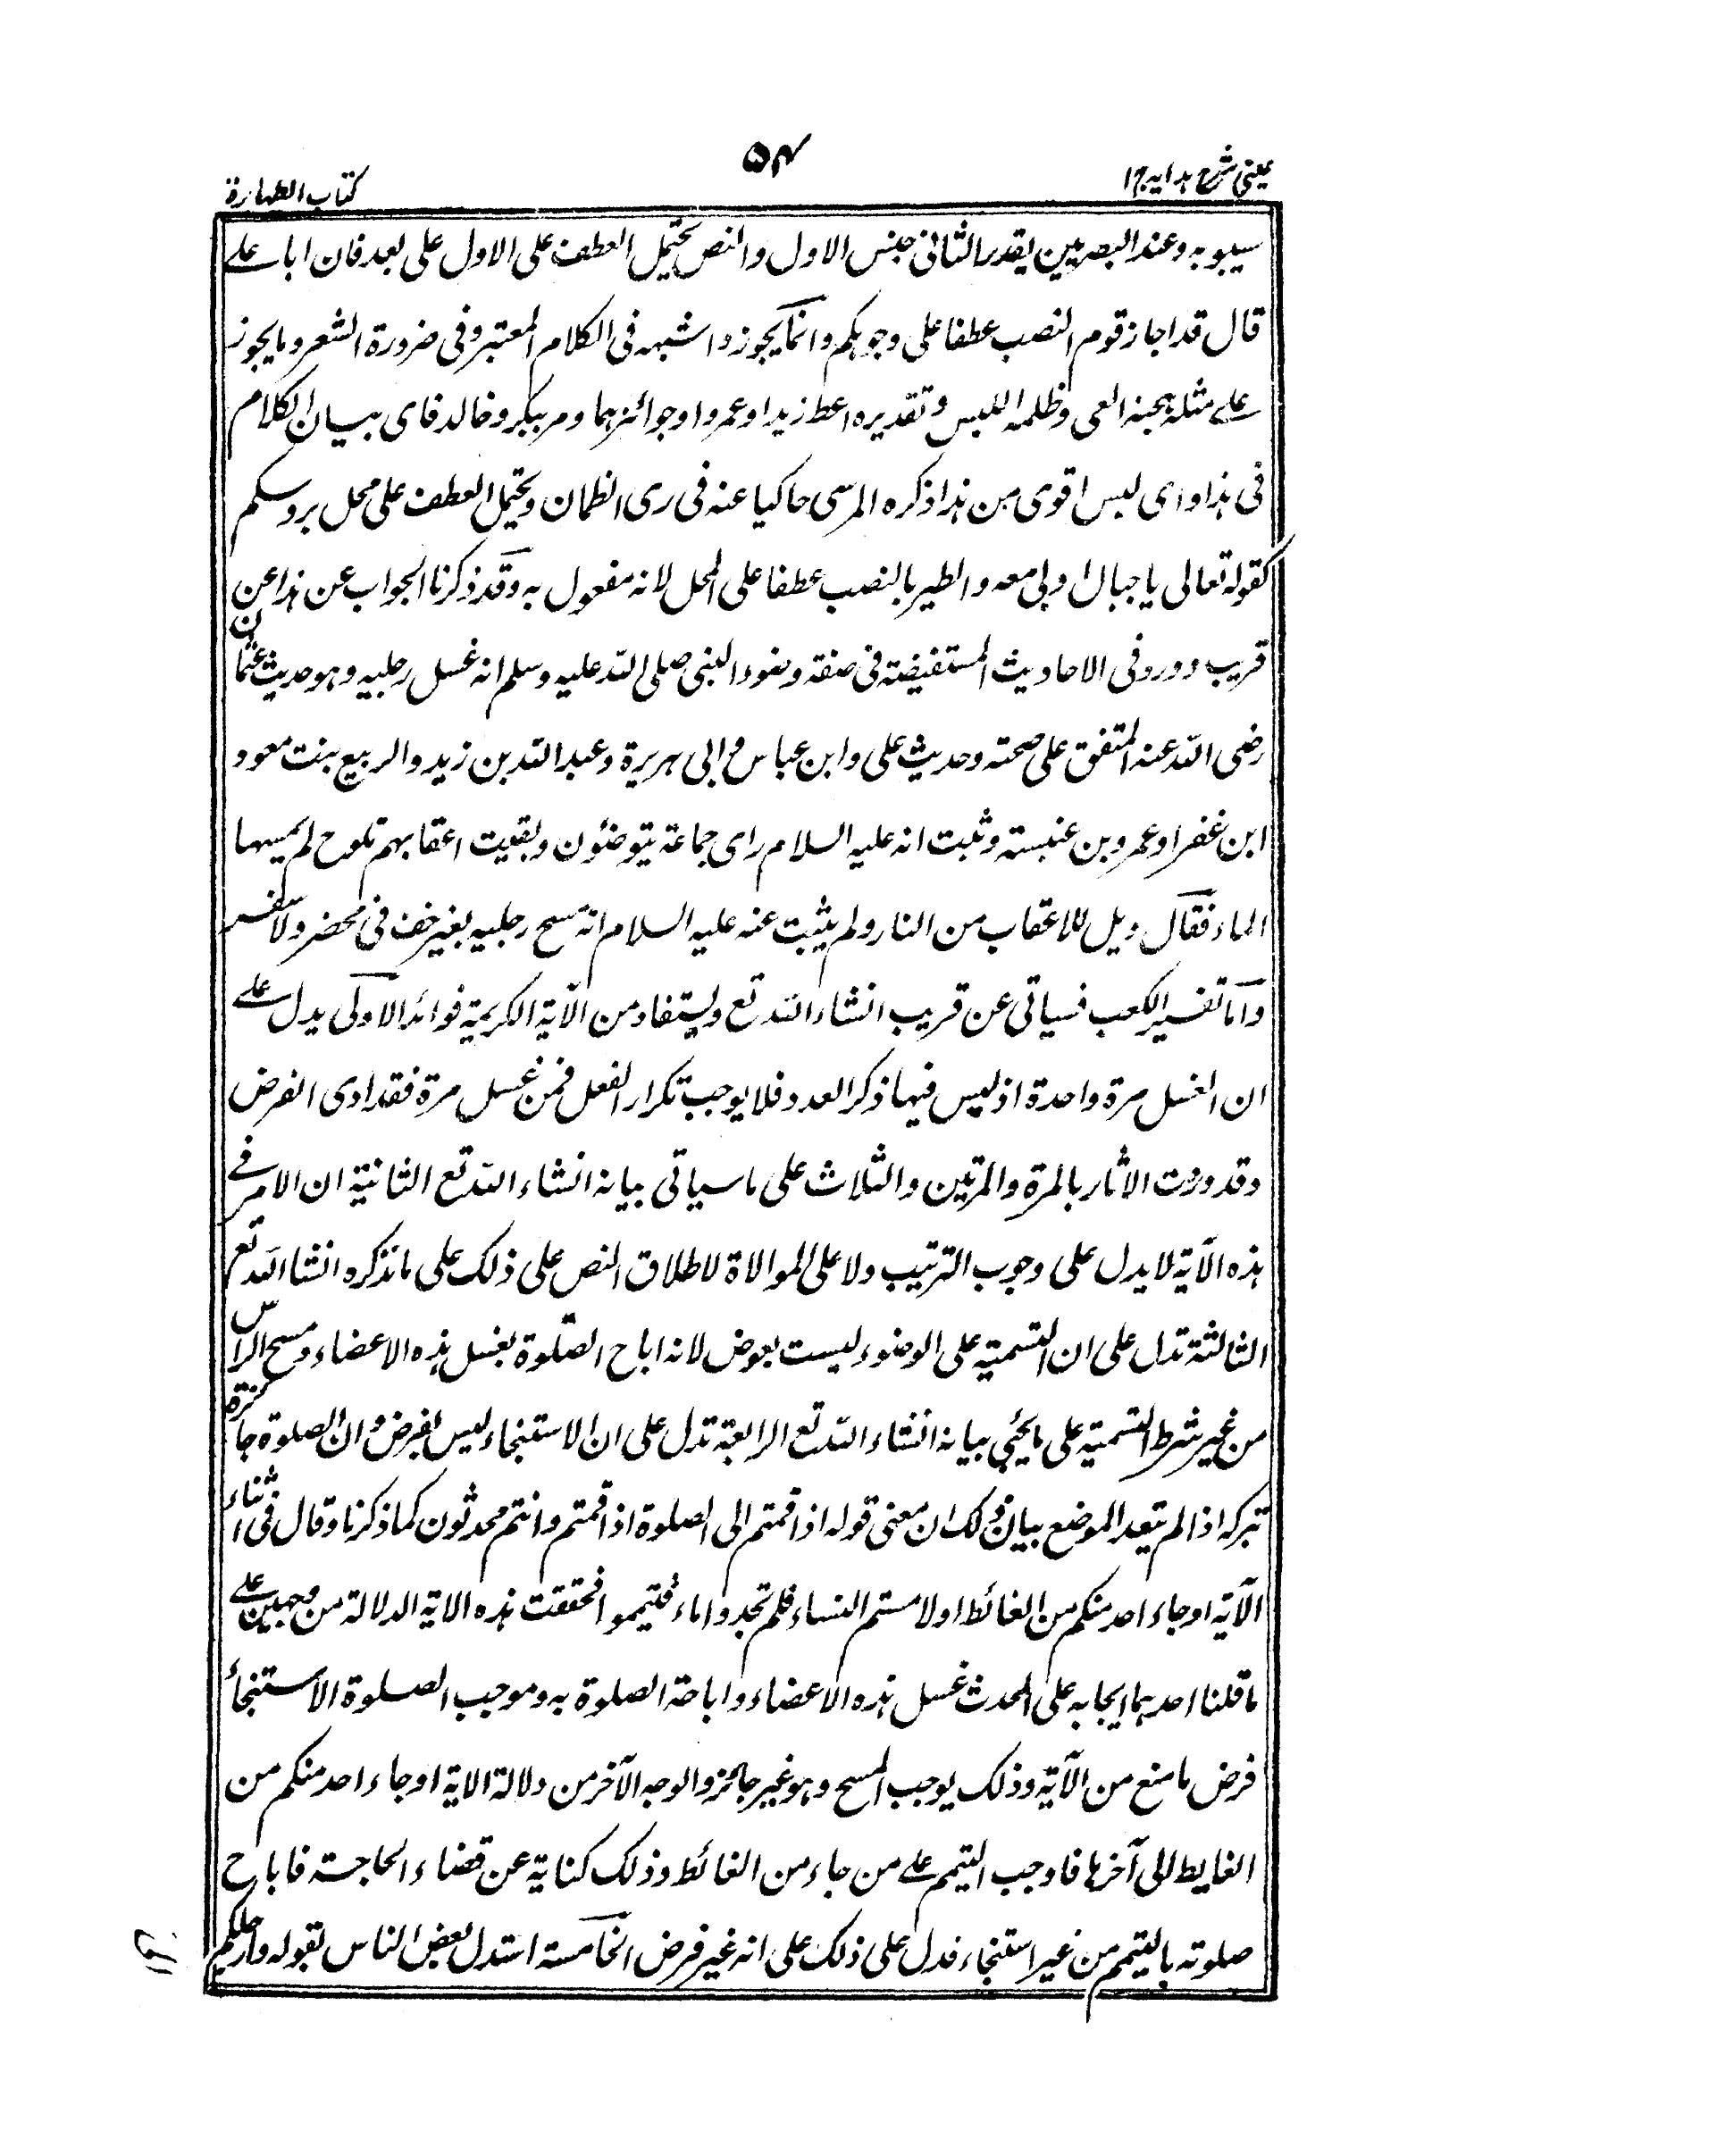 عيني شرح هدايه ج١
٥٤
كتاب الطهارة
سيبويه وعند البصريين يقدر الثاني جنس الاول والنص يحتمل العطف على الاول على بعد فان ابا على
قال قد اجاز قوم النصب عطفا على وجوهكم وانما يجوز واشبهه فى الكلام المعتبر وفى ضرورة الشعر وما يجوز
على مثله بهجنة العى وظلمة اللبس وتقديره اعط زيدا وعمروا وجوائزهما ومر ببكر وخالد فاى بيان الكلام
فى هذا واى لبس اقوى من هذا ذكره المرسى حاكيا عنه فى رى الظمان ويحتمل العطف على محل بروسكم
كقوله تعالى يا جبال اوبى معه والطير بالنصب عطفا على المحل لانه مفعول به وقد ذكرنا الجواب عن هذا عن
قريب وورد فى الاحاديث المستفيضة فى صفة وضوء النبى صلى الله عليه وسلم انه غسل رجليه وهو حديث عثمان
رضى الله عنه المتفق على صحته وحديث على وابن عباس وابى هريرة وعبد الله بن زيد والربيع بنت معود
ابن غفرا وعمرو بن عنبسة وثبت انه عليه السلام راى جماعة يتوضئون وبقيت اعقابهم تلوح لم يمسها
الماء فقال ويل للاعقاب من النار ولم يثبت عنه عليه السلام انه مسح رجليه بغير خف فى محضر ولا سفر
واما تفسير الكعب فسياتى عن قريب انشاء الله تع ويستفاد من الآية الكريمة فوائد الاولى يدل على
ان الغسل مرة واحدة اذ ليس فيها ذكر العدد فلا يوجب تكرار الفعل فمن غسل مرة فقد ادى الفرض
وقد وردت الاثار بالمرة والمرتين والثلاث على ما سياتى بيانه انشاء الله تع الثانية ان الامر فى
هذه الآية لا يدل على وجوب الترتيب ولا على الموالاة لاطلاق النص على ذلك على ما نذكره انشا الله تع
الثالثة تدل على ان التسمية على الوضوء ليست بعوض لانه اباح الصلوة بغسل هذه الاعضاء ومسح الراس
من غير شرط التسمية على ما يجئ بيانه انشاء الله تع الرابعة تدل على ان الاستنجاء ليس بفرض وان الصلوة جائزة
بتركه اذا لم يتعد الموضع بيان ذلك ان معنى قوله اذا قمتم الى الصلوة اذا قمتم وانتم محدثون كما ذكرنا وقال فى اثناء
الآية او جاء احد منكم من الغائط او لامستم النساء فلم تجدوا ماء فتيمموا فحققت هذه الاية الدلالة من وجهين على
ما قلنا احدهما ايجابه على المحدث غسل هذه الاعضاء واباحة الصلوة به وموجب الصلوة الاستنجأ
فرض مامنع من الآية وذلك يوجب المسح وهو غير جائز والوجه الآخر من دلالة الاية او جاء احد منكم من
الغايط الى آخرها فاوجب التيمم على من جاء من الغائط وذلك كناية عن قضاء الحاجة فاباح
صلوته بالتيمم من غير استنجاء فدل على ذلك على انه غير فرض الخامسة استدل بعض الناس بقوله وارجلكم